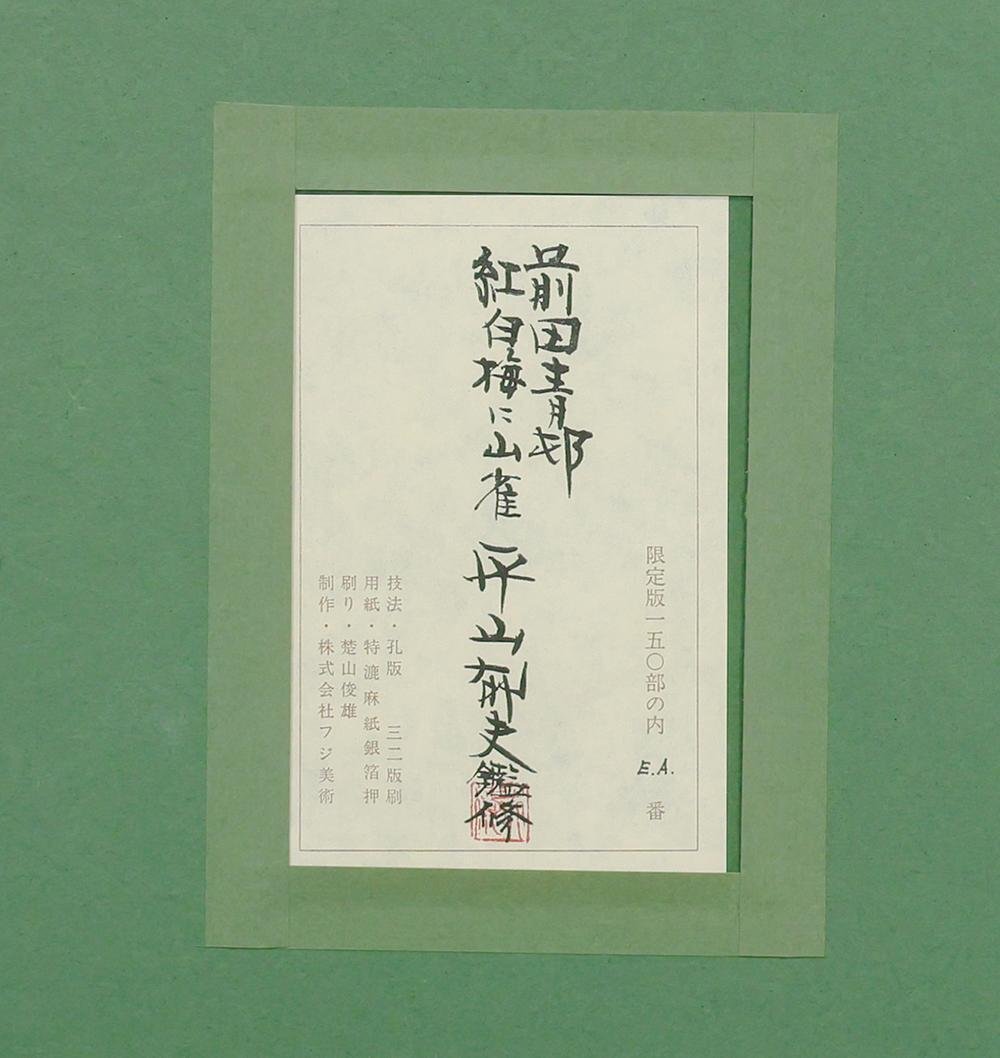 限定版一五〇部の内 E.A. 番
前田青邨
紅白梅に山雀 平山郁夫鑑修
技法・孔版 三二版刷
用紙・特漉麻紙銀箔押
刷り・楚山俊雄
制作・株式会社フジ美術